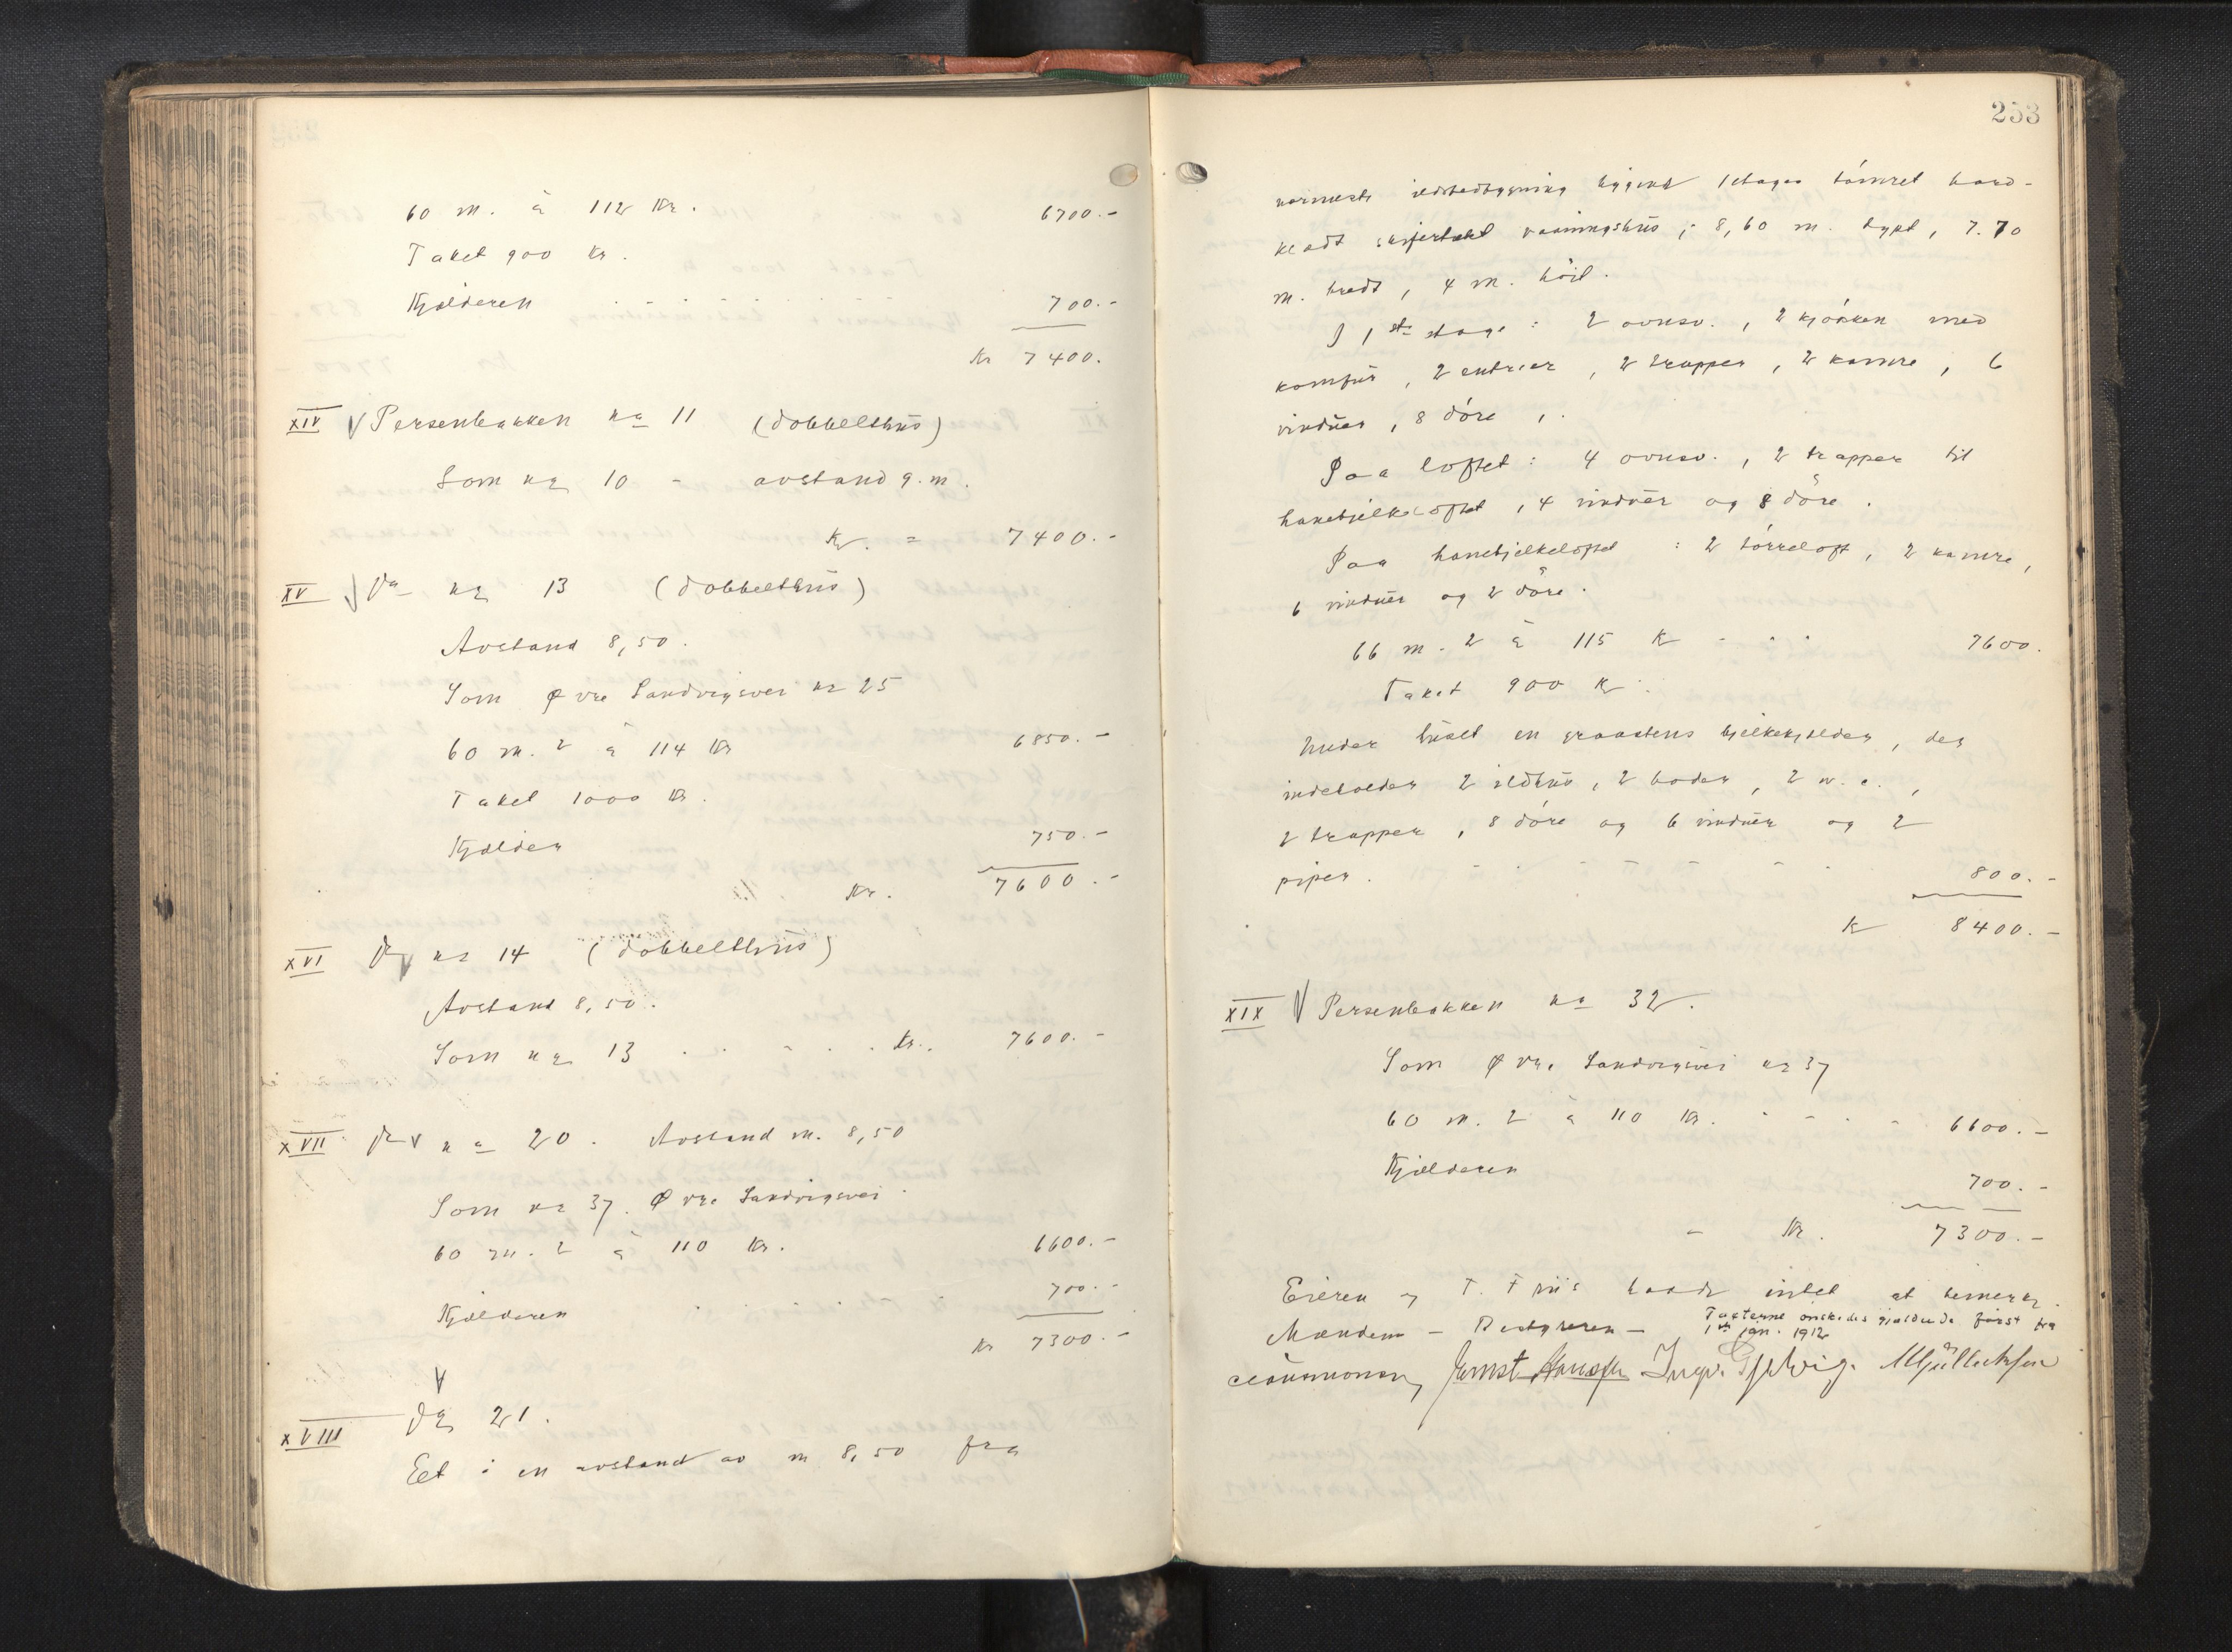 60 m. à 112 Kr. 6700.-
Taket 900 Kr.
Kjælderen 700.-
Kr 7400.
XIV Persenbakken no 11 (dobbelthus)
Som no 10 - avstand 9. m.
Kr. = 7400.-
XV Do no 13 (dobbelthus)
Avstand 8,50.
Som Øvre Sandvigsvei no 25
60 m. 2 à 114 Kr 6850.-
Taket 1000 Kr.
Kjælder 750.-
Kr. 7600.-
XVI Do no 14 (dobbelthus)
Avstand 8,50.
Som no 13 Kr. 7600.-
XVII Do no 20. Avstand m. 8,50
Som no 37. Øvre Sandvigsvei.
60 m. 2 à 110 Kr. 6600.-
Kjælderen 700.-
Kr 7300.-
XVIII Do 21.
Et i en avstand av m 8,50 fra
253
nærmeste ildstedbygning liggende 1etages tømret bord-
klædt skifertækt vaaningshus; 8,60 m. dypt, 7.70
m. bredt, 4 m. höit.
I 1ste etage: 2 ovnsv., 2 kjökken med
komfur, 2 entreer, 2 trapper, 2 kamre, 6
vinduer, 8 döre,.
Paa loftet: 4 ovnsv., 2 trapper til
hanebjelkeloftet, 4 vinduer og 8 döre.
Paa hanebjelkeloftet: 2 törreloft, 2 kamre,
6 vinduer og 2 döre.
66 m. 2 à 115 Kr 7600.
Taket 900 Kr.
Under huset en graastens bjelkekjelder, der
indeholder 2 ildhus, 2 boder, 2 w.c.,
2 trapper, 8 döre og 6 vinduer og 2
piper. 800.-
Kr 8400.-
XIX Persenbakken no 32.
Som Øvre Sandvigsvei no 37
60 m. 2 à 110 Kr. 6600.-
Kjælderen 700.-
Kr. 7300.-
Eieren og T. Friis havde intet at bemerke.
Taxterne önskedes gjældende först fra
1ste jan. 1912
Ernst Hansen Ingv.